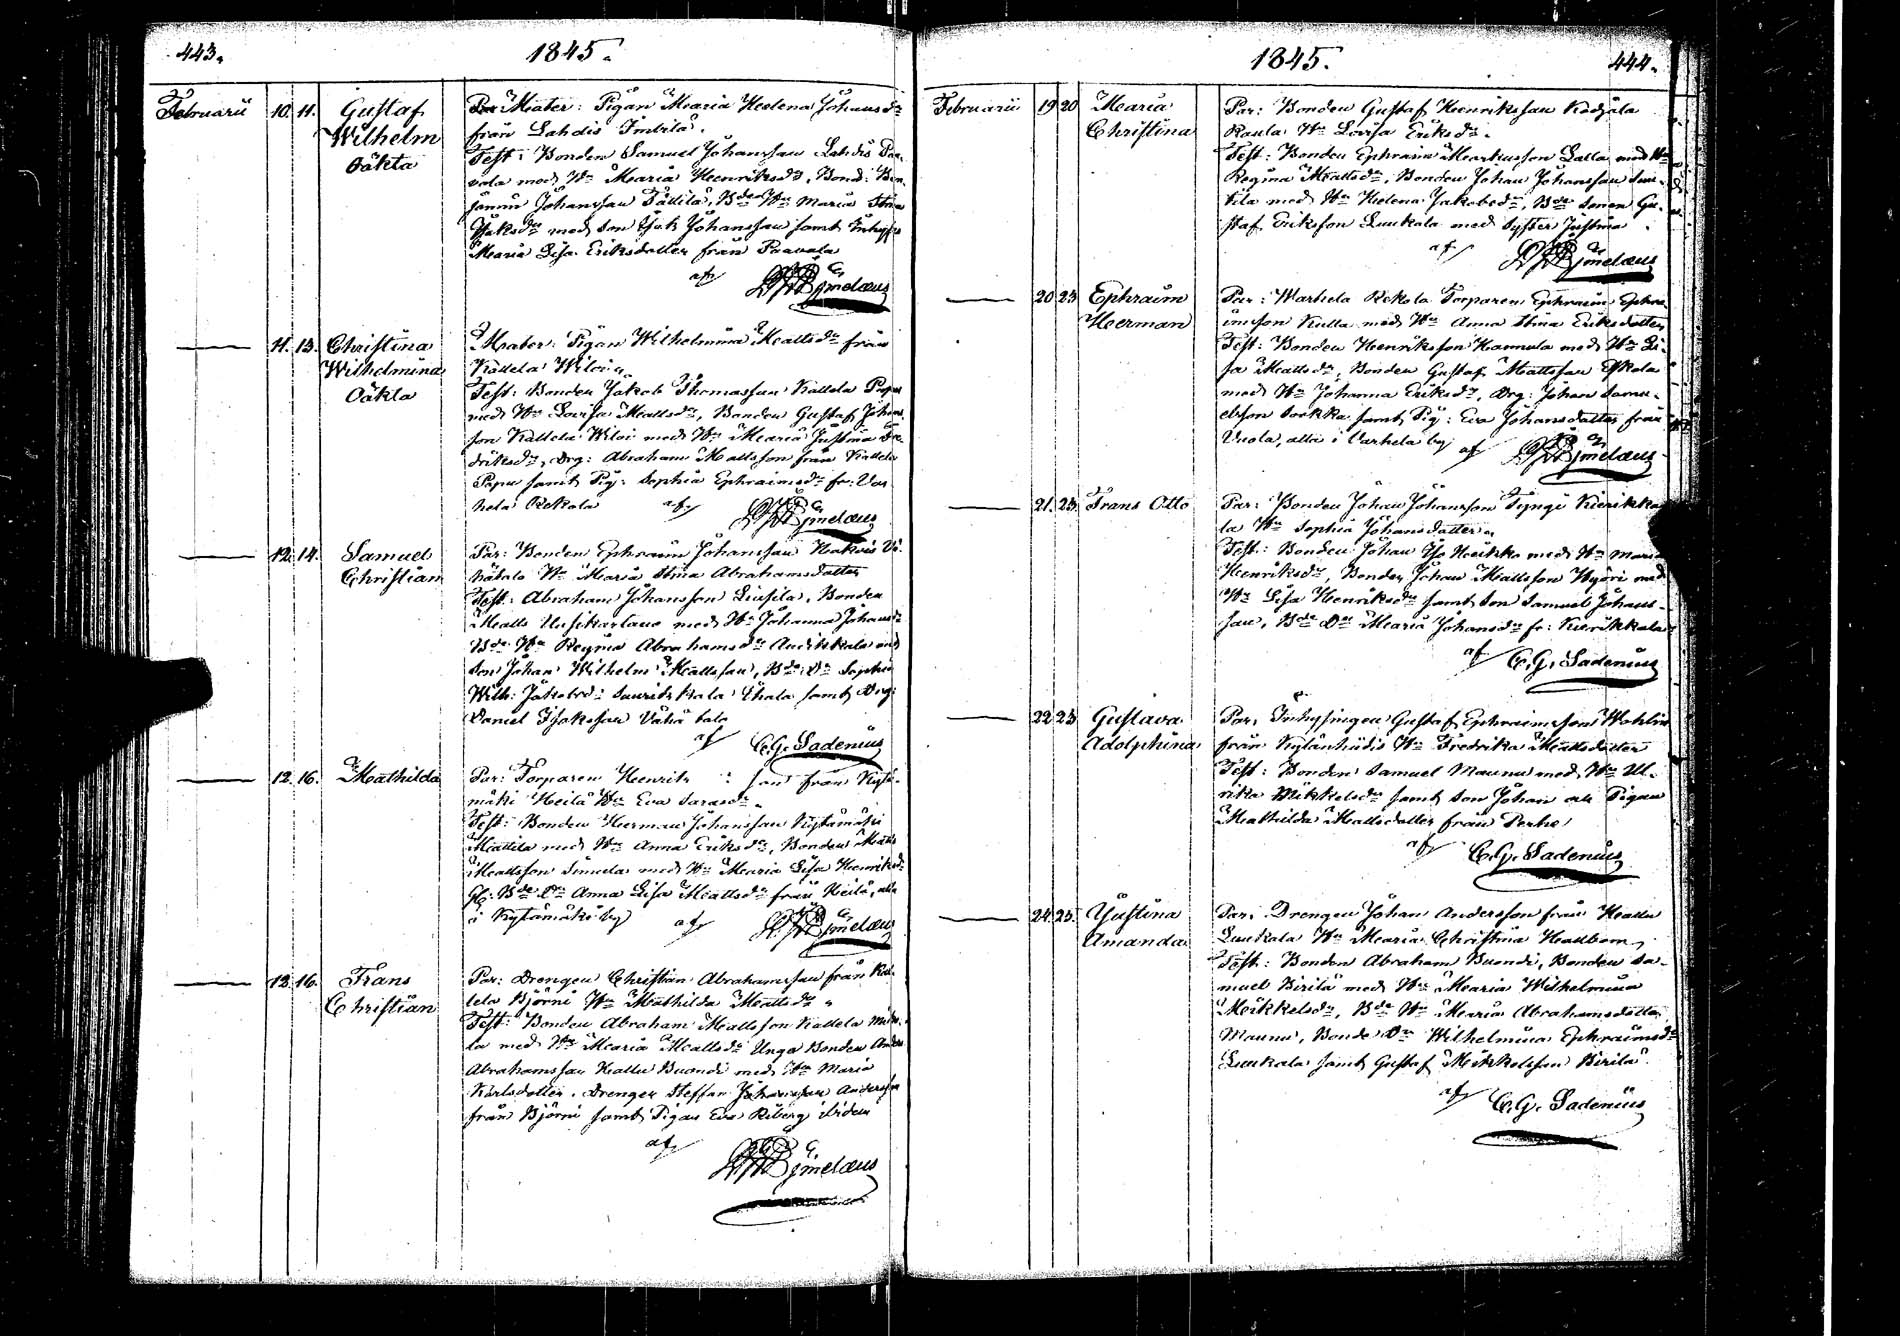 443. 1845.
Februarii 10. 11. Gustaf Wilhelm Oäkta
Par Mater: Pigan Maria Helena Johansdr
från Lahdis Imbilä.
Test: Bonden Samuel Johansson Lahdis Paa-
vola med Hu Maria Henriksdr, Bond: Ben-
jamin Johansson Tällilä, Bde Hu Maria Stina
Isaksdr med son Isak Johansson samt Inhyss
Maria Lisa Eriksdotter från Paavola
af
11. 13. Christina Wilhelmina Oäkta
Mater: Pigan Wilhelmina Mattsdr från
Kallela Wiloi
Test: Bonden Jakob Thomasson Kallela Papu
med Hu Lovisa Mattsdr, Bonden Gustaf Johans
son Kallela Wiloi med Hu Maria Justina Fre
driksdr, Drg: Abraham Mattsson från Kallela
Papu samt Pig: Sophia Ephraimsdr fr: Var
hela Rekola af
12. 14. Samuel Christian
Par: Bonden Ephraim Johansson
Hu Maria Stina Abrahamsdotter
Test: Abraham Johansson Liusila, Bonden
Matts Uusikartano med Hu Johanna Johansdr
Bde Hu Regina Abrahamsdr Anckikala med
son Johan Wilhelm Mattsson, Bde Dr Sophia
Wilh: Jakobsdr samt Drg:
Daniel Isaksson Vähä talo
af C. G. Sadenius
12. 16. Mathilda
Par: Torparen Henrik son från Kytä-
mäki Heilä Hu Eva Sarasdr
Test: Bonden Herman Johansson Kytämäki
Mattila med Hu Anna Eriksdr, Bonden Matts
Mattsson Simula med Hu Maria Lisa Henriksdr
Bde Dr Anna Lisa Mattsdr från Heilä, alla
i Kytämäki by af
12. 16. Frans Christian
Par: Drengen Christian Abrahamsson från Kal-
lela Björni Hu Mathilda Mattsdr
Test: Bonden Abraham Mattsson Kallela
la med Hu Maria Mattsdr Unga Bonden Anders
Abrahamsson Hallu Buondi med Hu Maria
Karlsdotter, Drengen Steffan Johansson Andersson
från Björni samt Pigan Eva Riberg ibidem
af
1845. 444.
Februarii 19 20 Maria Christina
Par: Bonden Gustaf Henriksson Kodjala
Raula Hu Lovisa Eriksdr
Test: Bonden Ephraim Markusson Lalla med Hu
Regina Mattsdr, Bonden Johan Johansson Sun-
tila med Hu Helena Jakobsdr, Bde Sonen Gu-
staf Eriksson Luukala med syster Justina
af
20 23 Ephraim Herman
Par: Warhela Rekola Torparen Ephraim Ephra
imsson Kulla med Hu Anna Stina Eriksdotter
Test: Bonden Henriksson Hannula med Hu Li-
sa Mattsdr, Bonden Gustaf Mattsson Eskola
med Hu Johanna Eriksdr, Drg: Johan Samu-
elsson Sorkka samt Pig: Eva Johansdotter från
Uvola, alla i Varhela by af
21. 23. Frans Otto
Par: Bonden Johan Johansson Tyngi Kierikka
la Hu Sophia Johansdotter
Test: Bonden Johan Iso Heikka med Hu Maria
Henriksdr, Bonden Johan Mattsson Kyöri med
Hu Lisa Henriksdr samt son Samuel Johans-
son, Bde Dr Maria Johansdr fr: Kierikkala
af C. G. Sadenius
22 23 Gustava Adolphina
Par: Inhysingen Gustaf Ephraimsson Wahlin
från Kylänhiidis Hu Fredrika Mattsdotter
Test: Bonden Samuel Maunu med Hu Ul-
rika Mikkelsdr samt son Johan och Pigan
Mathilda Mattsdotter från Perhe
af C. G. Sadenius
24. 25. Justina Amanda
Par: Drengen Johan Andersson från Hallu
Luukala Hu Maria Christina Hallbom
Test: Bonden Abraham Buondi, Bonden Sa-
muel Birilä med Hu Maria Wilhelmina
Mikkelsdr, Bde Hu Maria Abrahamsdotter
Maunu, Bonde Dr Wilhelmina Ephraimsdr
Luukala samt Gustaf Mikkelsson Birilä
af C. G. Sadenius